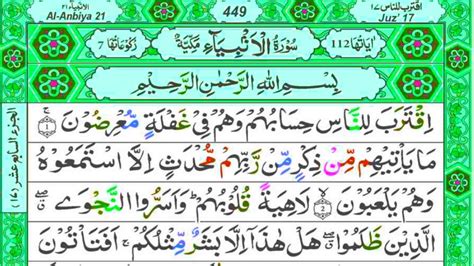 الانبياء ٢١
Al-Anbiya 21
449
اقترب للناس ١٧
Juz' 17
اٰیَاتُهَا 112 سُوْرَةُ الْاَنْۢبِیَآءِ مَکِّیَّةٌ رُکُوْعَاتُهَا 7
بِسْمِ اللّٰهِ الرَّحْمٰنِ الرَّحِیْمِ
اِقْتَرَبَ لِلنَّاسِ حِسَابُهُمْ وَهُمْ فِیْ غَفْلَةٍ مُّعْرِضُوْنَ ۚ 1
مَا یَاْتِیْهِمْ مِّنْ ذِکْرٍ مِّنْ رَّبِّهِمْ مُّحْدَثٍ اِلَّا اسْتَمَعُوْهُ
وَهُمْ یَلْعَبُوْنَ ۙ 2 لَاهِیَةً قُلُوْبُهُمْ ؕ وَاَسَرُّوا النَّجْوَی ۖۗ
الَّذِیْنَ ظَلَمُوْا ۖۗ هَلْ هٰذَاۤ اِلَّا بَشَرٌ مِّثْلُکُمْ ۚ اَفَتَاْتُوْنَ
الجزء السابع عشر (١٧)